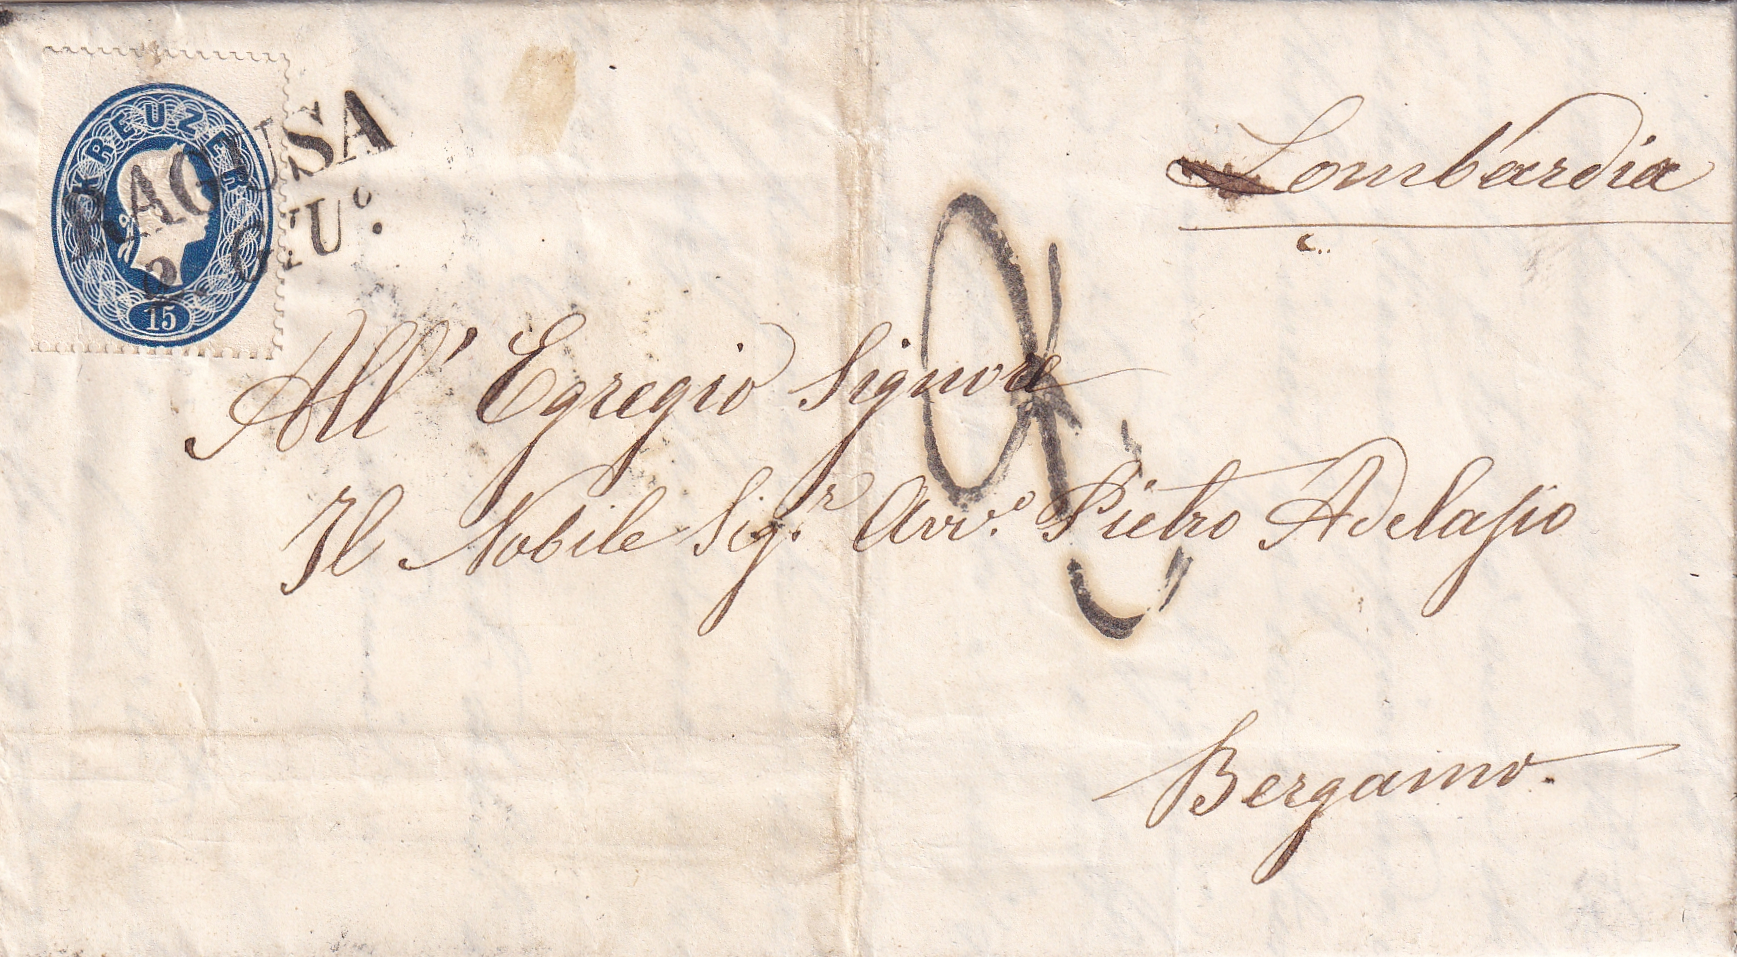 KREUZER
15
RAGUSA
2. GIU°.
Lombardia
All' Egregio Signore
Il Nobile Sig.r Avv.o Pietro Adelasio
Bergamo.